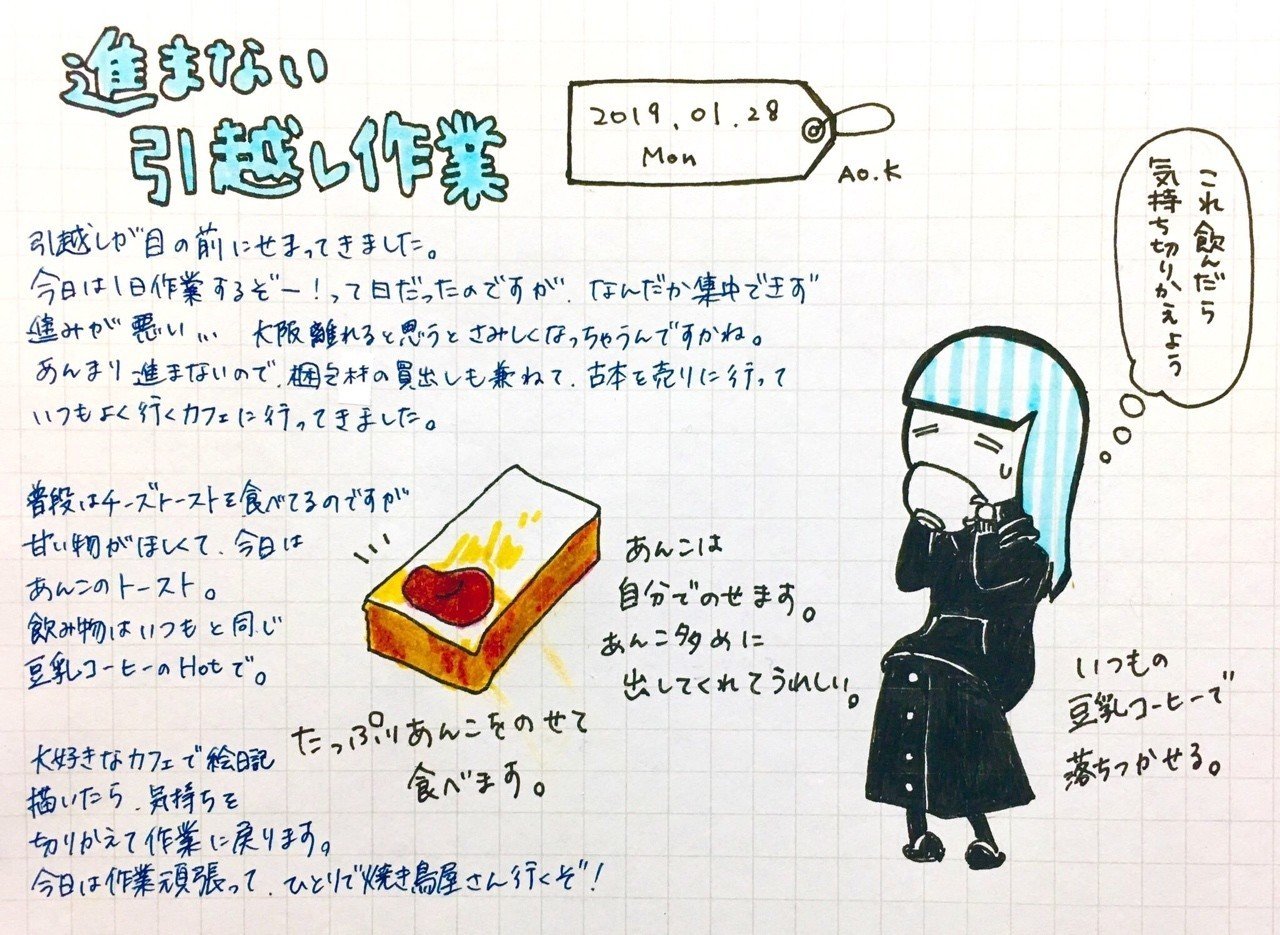 進まない
引越し作業
2019.01.28
Mon
AO.K
引越しが目の前にせまってきました。
今日は1日作業するぞー!って日だったのですが、なんだか集中できず
進みが悪い... 大阪離れると思うとさみしくなっちゃうんですかね。
あんまり進まないので、梱包材の買出しも兼ねて、古本を売りに行って
いつもよく行くカフェに行ってきました。
普段はチーズトーストを食べてるのですが
甘い物がほしくて、今日は
あんこのトースト。
飲み物はいつもと同じ
豆乳コーヒーのHotで。
大好きなカフェで絵日記
描いたら、気持ちを
切りかえて作業に戻ります。
今日は作業頑張って、ひとりで焼き鳥屋さん行くぞ!
あんこは
自分でのせます。
あんこ多めに
出してくれてうれしい。
たっぷりあんこをのせて
食べます。
これ飲んだら
気持ち切りかえよう
いつもの
豆乳コーヒーで
落ちつかせる。